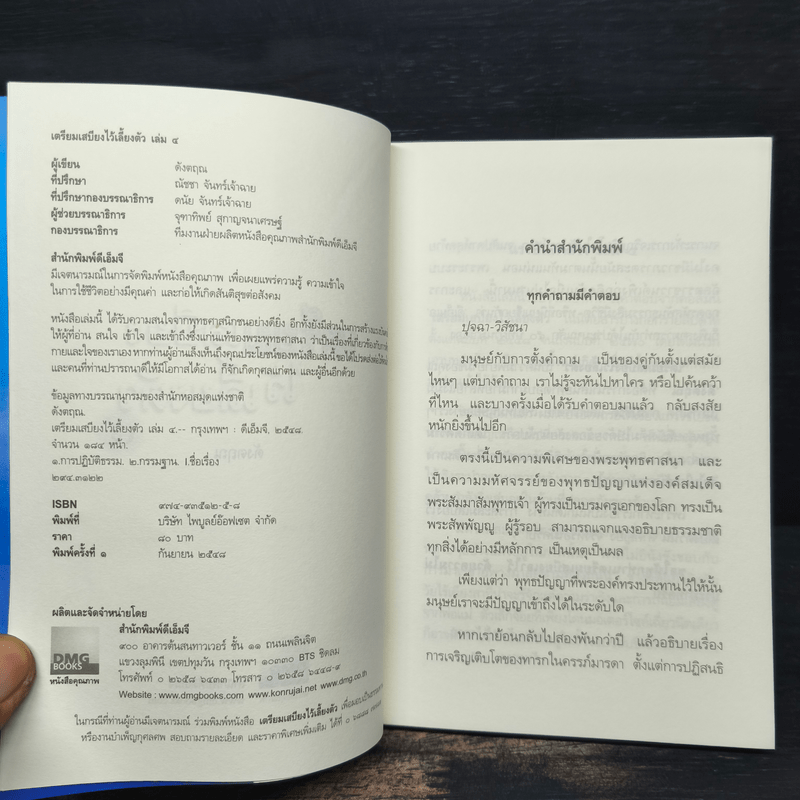 เตรียมเสบียงไว้เลี้ยงตัว เล่ม ๔
ผู้เขียน ดังตฤณ
ที่ปรึกษา ณัชชา จันทร์เจ้าฉาย
ที่ปรึกษากองบรรณาธิการ ดนัย จันทร์เจ้าฉาย
ผู้ช่วยบรรณาธิการ จุฑาทิพย์ สุกาญจนาเศรษฐ์
กองบรรณาธิการ ทีมงานฝ่ายผลิตหนังสือคุณภาพสำนักพิมพ์ดีเอ็มจี
สำนักพิมพ์ดีเอ็มจี
มีเจตนารมณ์ในการจัดพิมพ์หนังสือคุณภาพ เพื่อเผยแพร่ความรู้ ความเข้าใจ
ในการใช้ชีวิตอย่างมีคุณค่า และก่อให้เกิดสันติสุขต่อสังคม
หนังสือเล่มนี้ ได้รับความสนใจจากพุทธศาสนิกชนอย่างดียิ่ง อีกทั้งยังมีส่วนในการสร้าง
ให้ผู้ที่อ่าน สนใจ เข้าใจ และเข้าถึงซึ่งแก่นแท้ของพระพุทธศาสนา ว่าเป็นเรื่องที่เกี่ยวข้องกับ
กายและใจของเราเอง หากท่านผู้อ่านเล็งเห็นถึงคุณประโยชน์ของหนังสือเล่มนี้ ขอได้โปรด
และคนที่ท่านปรารถนาดีให้มีโอกาสได้อ่าน ก็จักเกิดกุศลแก่ตน และผู้อื่นอีกด้วย
ข้อมูลทางบรรณานุกรมของสำนักหอสมุดแห่งชาติ
ดังตฤณ.
เตรียมเสบียงไว้เลี้ยงตัว เล่ม ๔.-- กรุงเทพฯ : ดีเอ็มจี, ๒๕๔๘.
จำนวน ๑๘๔ หน้า.
๑.การปฏิบัติธรรม. ๒.กรรมฐาน. I.ชื่อเรื่อง
๒๙๔.๓๑๒๒
ISBN ๙๗๔-๙๓๕๑๒-๕-๘
พิมพ์ที่ บริษัท ไพบูลย์อ๊อฟเซต จำกัด
ราคา ๘๐ บาท
พิมพ์ครั้งที่ ๑ กันยายน ๒๕๔๘
ผลิตและจัดจำหน่ายโดย
สำนักพิมพ์ดีเอ็มจี
DMG
BOOKS
หนังสือคุณภาพ
๙๐๐ อาคารต้นสนทาวเวอร์ ชั้น ๑๑ ถนนเพลินจิต
แขวงลุมพินี เขตปทุมวัน กรุงเทพฯ ๑๐๓๓๐ BTS ชิดลม
โทรศัพท์ ๐ ๒๖๕๘ ๖๔๓๓ โทรสาร ๐ ๒๖๕๘ ๖๔๔๘-๙
Website : www.dmgbooks.com www.konrujai.net www.dmg.co.th
ในกรณีที่ท่านผู้อ่านมีเจตนารมณ์ ร่วมพิมพ์หนังสือ เตรียมเสบียงไว้เลี้ยงตัว
หรืองานบำเพ็ญกุศลศพ สอบถามรายละเอียด และราคาพิเศษเพิ่มเติม ได้ที่
คำนำสำนักพิมพ์
ทุกคำถามมีคำตอบ
ปุจฉา-วิสัชนา
มนุษย์กับการตั้งคำถาม เป็นของคู่กันตั้งแต่สมัย
ไหนๆ แต่บางคำถาม เราไม่รู้จะหันไปหาใคร หรือไปค้นคว้า
ที่ไหน และบางครั้งเมื่อได้รับคำตอบมาแล้ว กลับสงสัย
หนักยิ่งขึ้นไปอีก
ตรงนี้เป็นความพิเศษของพระพุทธศาสนา และ
เป็นความมหัศจรรย์ของพุทธปัญญาแห่งองค์สมเด็จ
พระสัมมาสัมพุทธเจ้า ผู้ทรงเป็นบรมครูเอกของโลก ทรงเป็น
พระสัพพัญญู ผู้รู้รอบ สามารถแจกแจงอธิบายธรรมชาติ
ทุกสิ่งได้อย่างมีหลักการ เป็นเหตุเป็นผล
เพียงแต่ว่า พุทธปัญญาที่พระองค์ทรงประทานไว้ให้นั้น
มนุษย์เราจะมีปัญญาเข้าถึงได้ในระดับใด
หากเราย้อนกลับไปสองพันกว่าปี แล้วอธิบายเรื่อง
การเจริญเติบโตของทารกในครรภ์มารดา ตั้งแต่การปฏิสนธิ